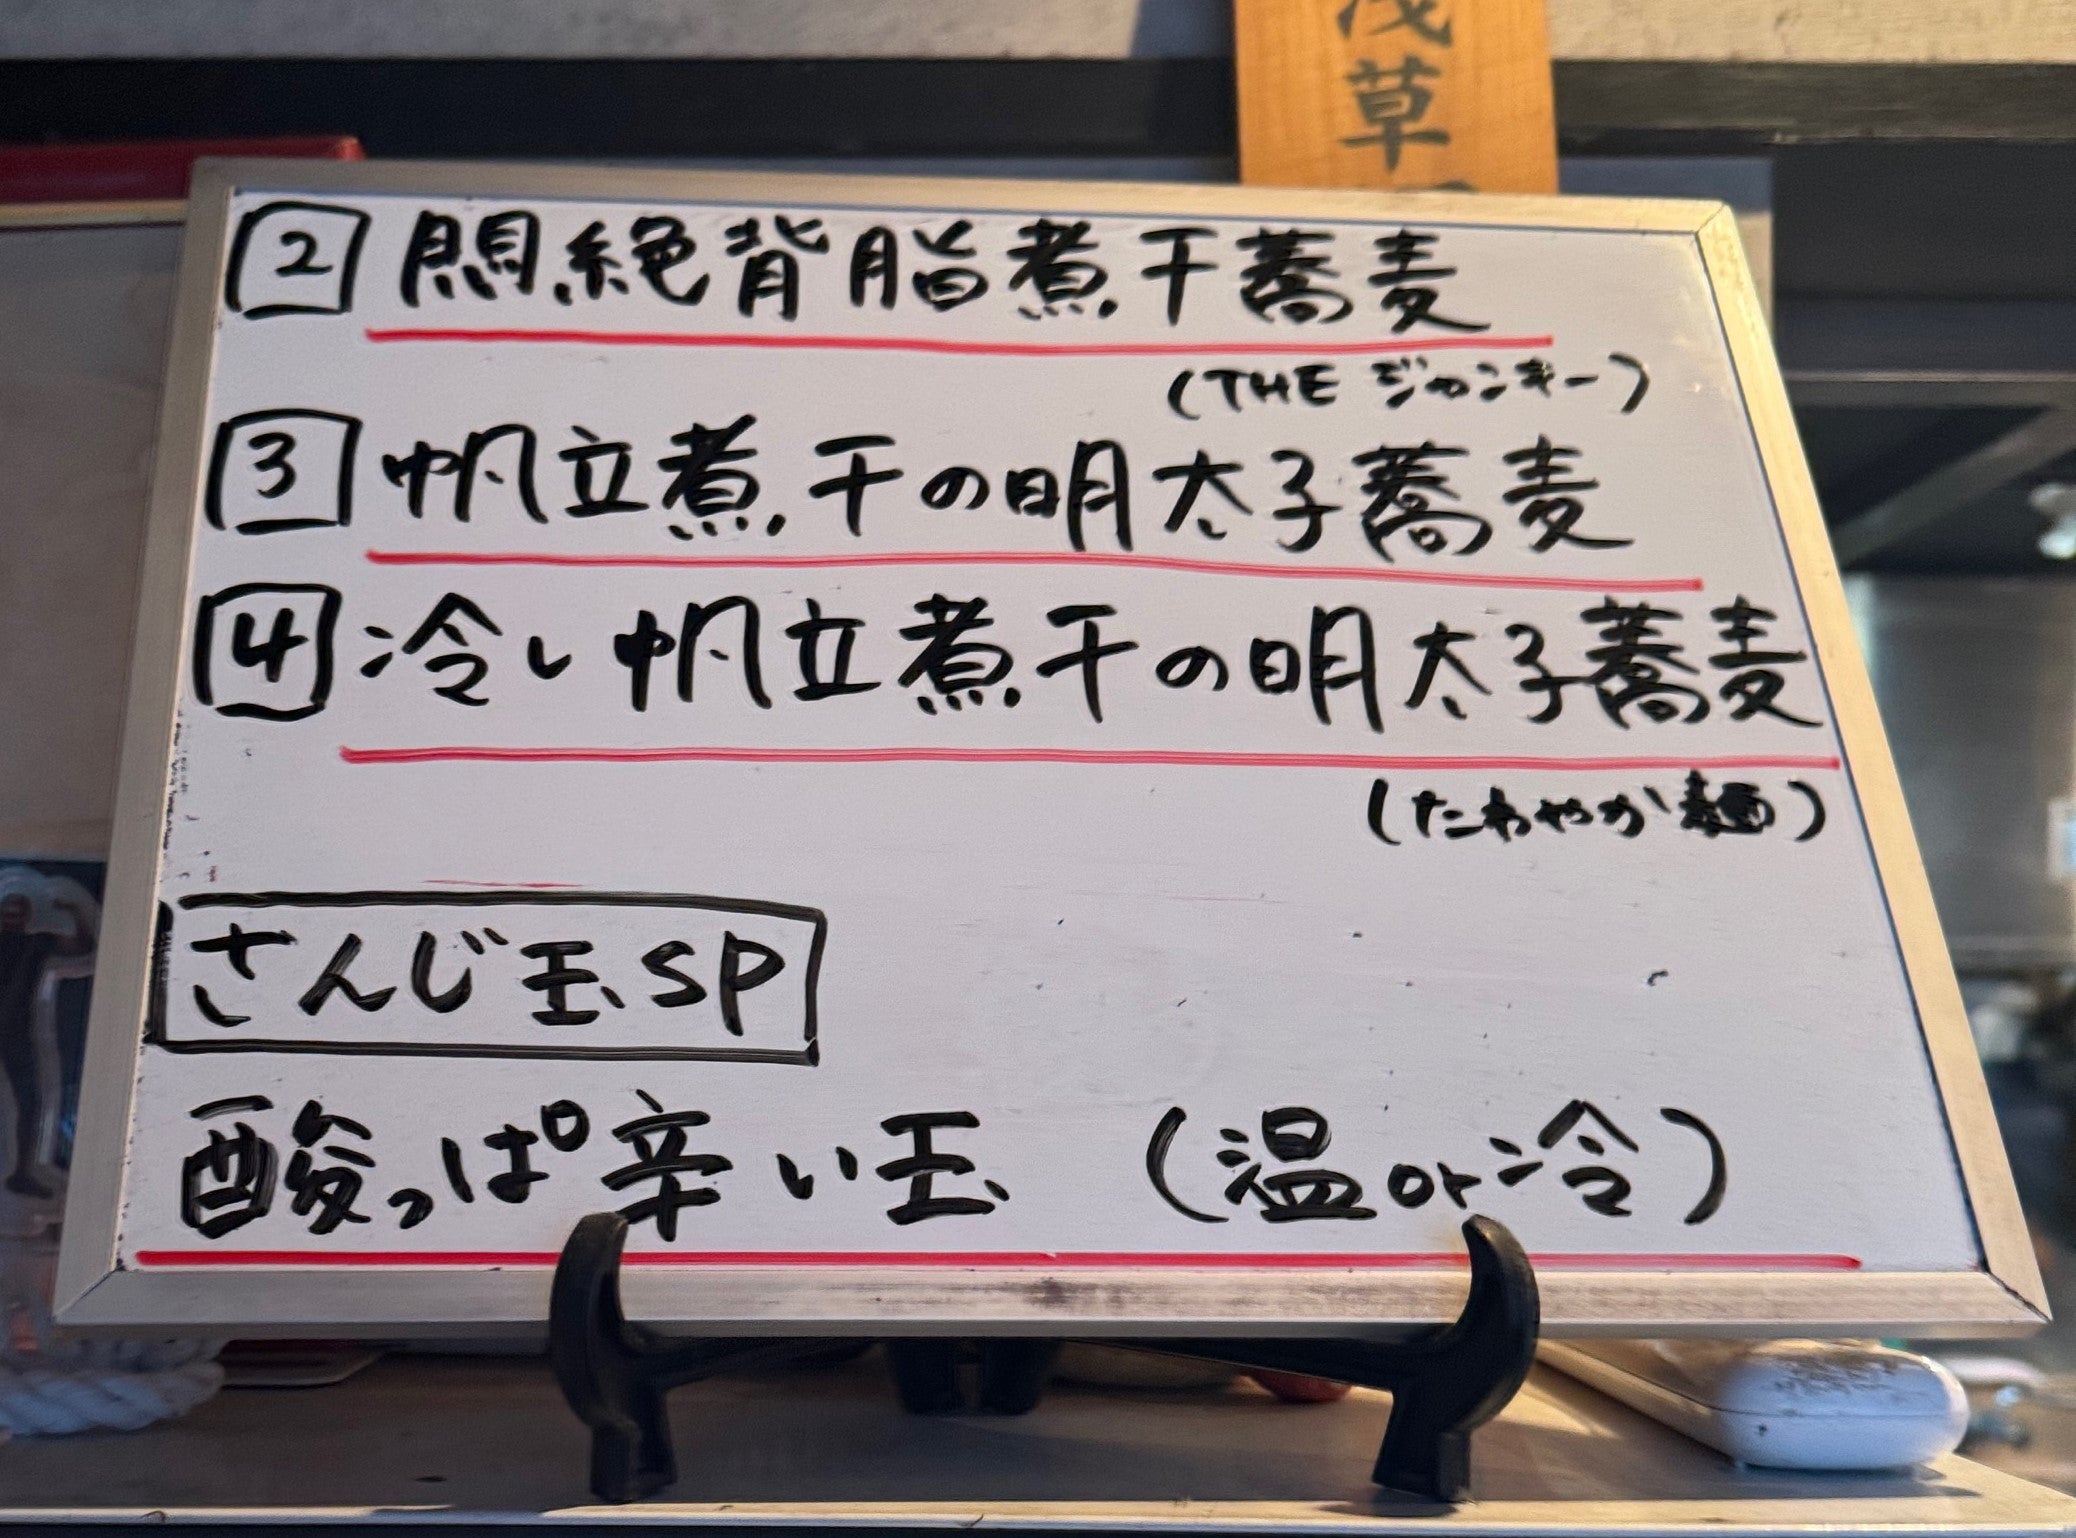 浅草
2 悶絶背脂煮干蕎麦
(THE ジャンキー)
3 帆立煮干の明太子蕎麦
4 冷し帆立煮干の明太子蕎麦
(たわやか麺)
さんじ玉SP
酸っぱ辛い玉 (温or冷)